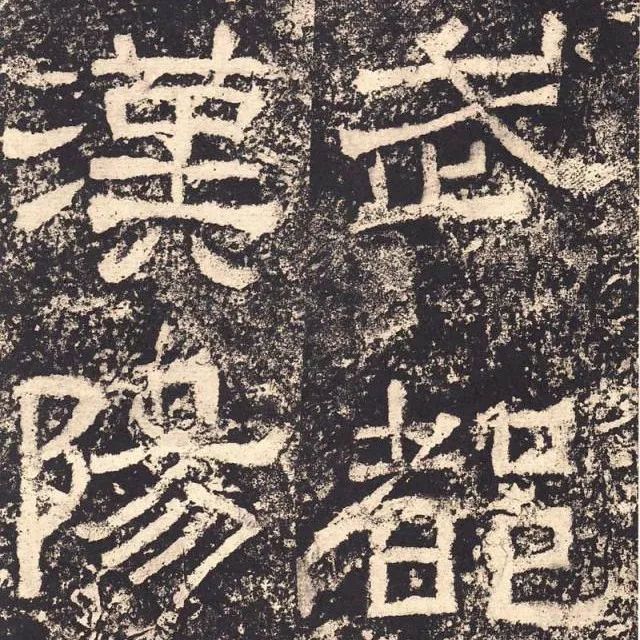 武都
漢陽